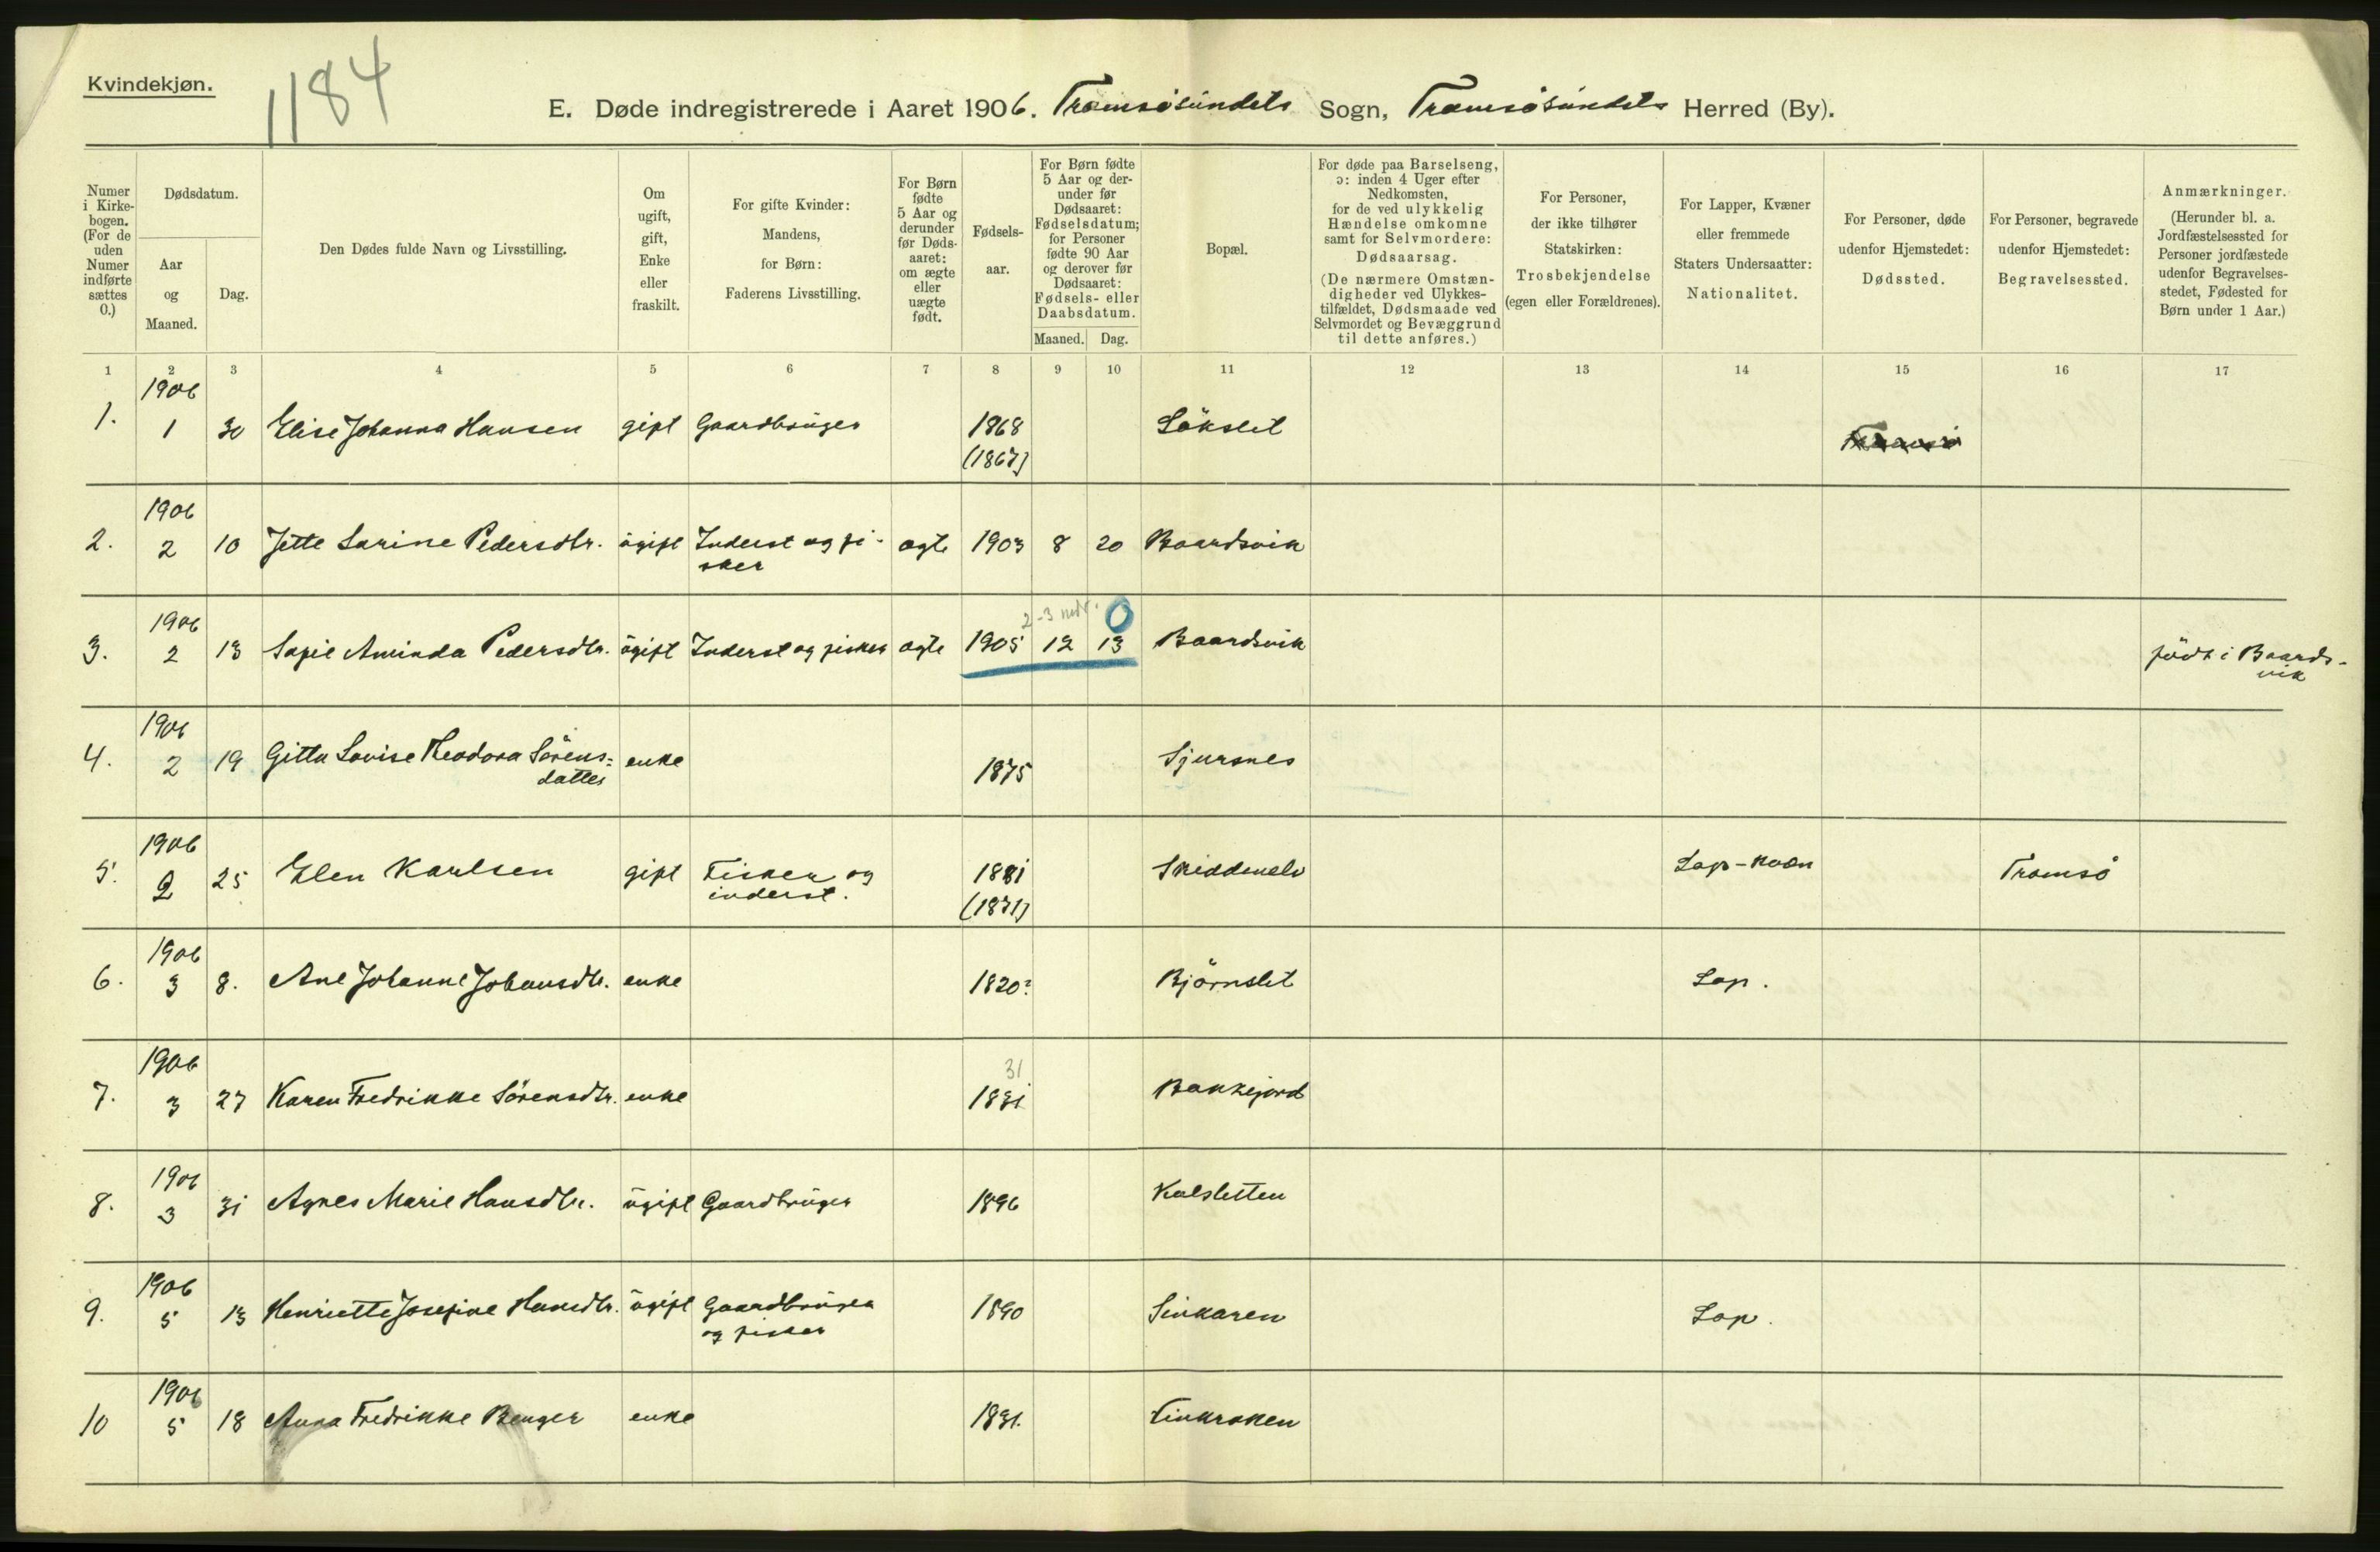 Kvindekjøn.
1184
E. Døde indregistrerede i Aaret 1906. Tromsösundets Sogn, Tromsösundets Herred (By).
Numer i Kirkebogen. (For de uden Numer indførte sættes 0.)
Dødsdatum.
Aar og Maaned.
Dag.
Den Dødes fulde Navn og Livsstilling.
Om ugift, gift, Enke eller fraskilt.
For gifte Kvinder: Mandens, for Børn: Faderens Livsstilling.
For Børn fødte 5 Aar og derunder før Dødsaaret: om ægte eller uægte født.
Fødselsaar.
For Børn fødte 5 Aar og derunder før Dødsaaret: Fødselsdatum; for Personer fødte 90 Aar og derover før Dødsaaret: Fødsels- eller Daabsdatum.
Maaned. Dag.
Bopæl.
For døde paa Barselseng, ɔ: inden 4 Uger efter Nedkomsten, for de ved ulykkelig Hændelse omkomne samt for Selvmordere: Dødsaarsag. (De nærmere Omstændigheder ved Ulykkestilfældet, Dødsmaade ved Selvmordet og Bevæggrund til dette anføres.)
For Personer, der ikke tilhører Statskirken: Trosbekjendelse (egen eller Forældrenes).
For Lapper, Kvæner eller fremmede Staters Undersaatter: Nationalitet.
For Personer, døde udenfor Hjemstedet: Dødssted.
For Personer, begravede udenfor Hjemstedet: Begravelsessted.
Anmærkninger. (Herunder bl. a. Jordfæstelsessted for Personer jordfæstede udenfor Begravelsesstedet, Fødested for Børn under 1 Aar.)
1 2 3 4 5 6 7 8 9 10 11 12 13 14 15 16 17
1906
1. 1 30 Elise Johanna Hansen gift Gaardbruger 1868 Lökslet Tromsö
(1867)
1906
2. 2 10 Jette Sarine Pedersdtr. ugift Inderst og fi- ægte 1903 8 20 Baardsvik
sker
1906 2-3 mdr. 0
3. 2 13 Sofie Aminda Pedersdtr. ugift Inderst og fisker ægte 1905 12 13 Baardsvik födt i Baards-
vik
1906
4. 2 19 Gitta Lovise Theodora Sörens= enke 1875 Sjursnes
datter
1906
5. 2 25 Elen Karlsen gift Fisker og 1881 Skiddenelv Lap-kvæn Tromsö
inderst. (1871)
1906
6. 3 8. Ane Johanne Johansdtr. enke 1820? Björnslet Lap.
1906 31
7. 3 27 Karen Fredrikke Sörensdtr. enke 1831 Bakkejord
1906
8. 3 31 Agnes Marie Hansdtr. ugift Gaardbruger 1896 Kalsletten
1906
9. 5 13 Henriette Josefine Hansdtr. ugift Gaardbruger 1890 Lap.
og fisker
1906
10 5 18 Anna Fredrikke Benger enke 1831. Finkroken